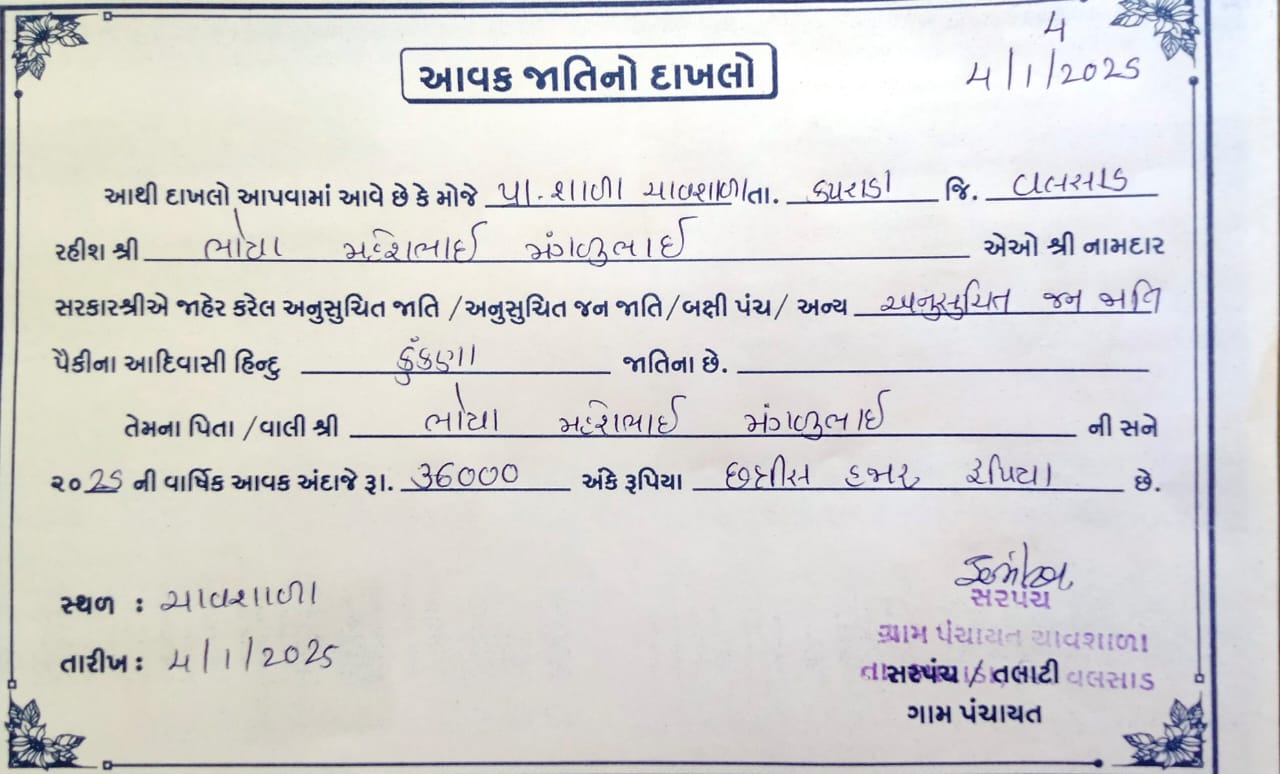 4
આવક જાતિનો દાખલો
4/1/2025
આથી દાખલો આપવામાં આવે છે કે મોજે પ્રા. શાળા ચાવશાળા તા. કપરાડા જિ. વલસાડ
રહીશ શ્રી ભોયા મહેશભાઈ મંગળુભાઈ એઓ શ્રી નામદાર
સરકારશ્રીએ જાહેર કરેલ અનુસુચિત જાતિ /અનુસુચિત જન જાતિ/બક્ષી પંચ/ અન્ય અનુસુચિત જન જાતિ
પૈકીના આદિવાસી હિન્દુ કુંકણા જાતિના છે.
તેમના પિતા /વાલી શ્રી ભોયા મહેશભાઈ મંગળુભાઈ ની સને
૨૦25 ની વાર્ષિક આવક અંદાજે રૂા. 36000 અંકે રૂપિયા છત્રીસ હજાર રૂપિયા છે.
સરપંચ
સ્થળ : ચાવશાળા
ગ્રામ પંચાયત ચાવશાળા
તારીખ : 4/1/2025
સરપંચ / તલાટી વલસાડ
ગામ પંચાયત